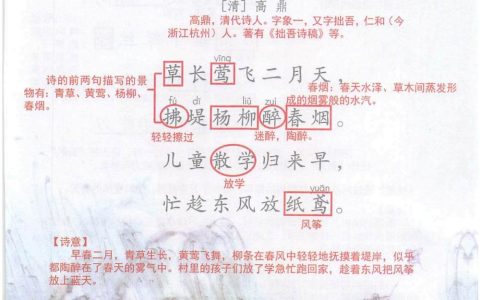 [清] 高 鼎
高鼎，清代诗人。字象一，又字拙吾，仁和（今
浙江杭州）人。著有《拙吾诗稿》等。
yīng
草长莺飞二月天，
诗的前两句描写的景
物有：青草、黄莺、杨柳、
春烟。
春烟：春天水泽、草木间蒸发形
成的烟雾般的水汽。
fú dī liǔ zuì
拂堤杨柳醉春烟。
轻轻擦过
迷醉，陶醉。
儿童散学归来早，
放学
yuān
忙趁东风放纸鸢。
风筝
【诗意】
早春二月，青草生长，黄莺飞舞，柳条在春风中轻轻地抚摸着堤岸，似乎
都陶醉在了春天的雾气中。村里的孩子们放了学急忙跑回家，趁着东风把风筝
放上蓝天。